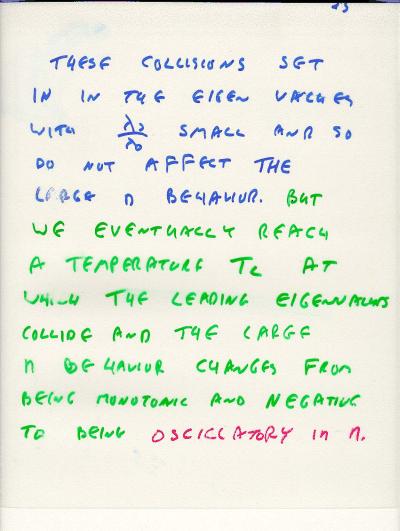 THESE COLLISIONS SET
IN IN THE EIGEN VALUES
WITH λ2/λ0 SMALL AND SO
DO NOT AFFECT THE
LARGE n BEHAVIOR. BUT
WE EVENTUALLY REACH
A TEMPERATURE Tc AT
WHICH THE LEADING EIGENVALUES
COLLIDE AND THE LARGE
n BEHAVIOR CHANGES FROM
BEING MONOTONIC AND NEGATIVE
TO BEING OSCILLATORY in n.